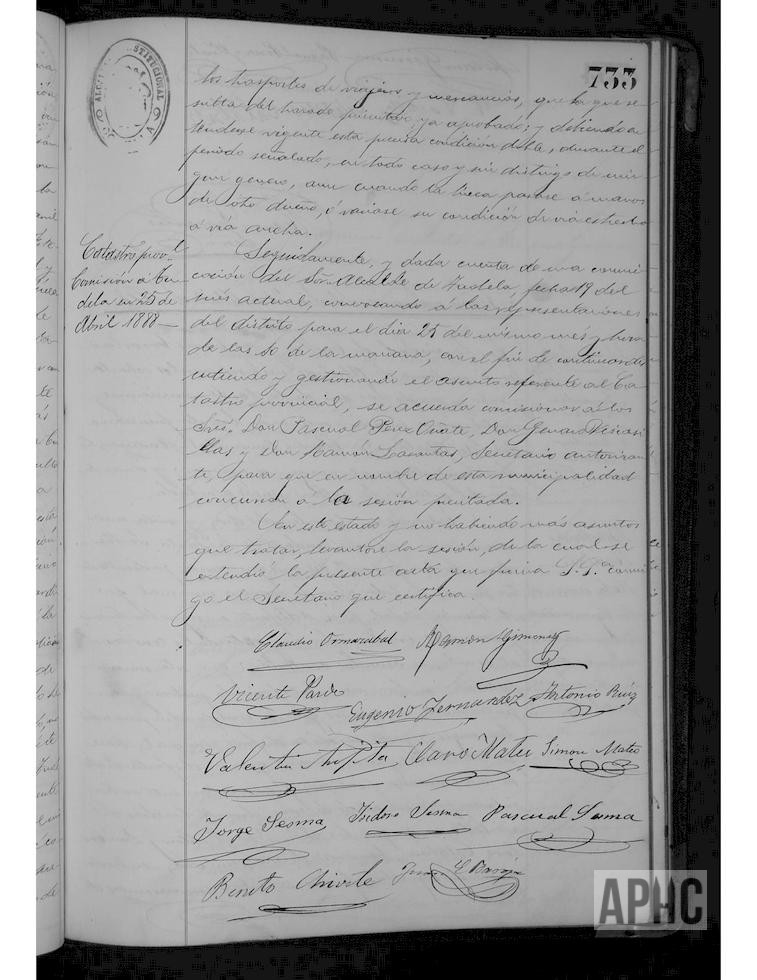 733
ALCALDIA CONSTITUCIONAL
los trasportes de viajeros y mercancias, que la que re-
sulta del trazado primitivo ya aprobado; y debiendo en-
tenderse vigente esta precisa condición dicha, durante el
periodo señalado, en todo caso y sin distingo de nin-
gun genero, aun cuando la linea pasase á manos
de otro dueño, ó variase su condición de via estrecha
á via ancha.
Catastro prov.l
Comisión á Tu-
dela en 25 de
Abril 1888
Seguidamente, y dada cuenta de una comuni-
cación del Sor. Alcalde de Tudela, fecha 19 del
mes actual, convocando á las representaciones
del distrito para el dia 25 del mismo mes y hora
de las 10 de la mañana, con el fin de continuar dis-
cutiendo y gestionando el asunto referente al Ca-
tastro provincial, se acuerda comisionar á los
Sres. Don Pascual Perez Oñate, Don Genaro
y Don Ramón Lasantas, Secretario autorizan-
te, para que en nombre de esta municipalidad
concurran á la sesión precitada.
En este estado y no habiendo más asuntos
que tratar, levantóse la sesión, de la cual se
estendió la presente acta que firma S.Sa conmi-
go el Secretario que certifica.
Claudio Ormazabal Ramon Gimenez
Vicente Pardo Eugenio Fernandez Antonio Ruiz
Valentin Claro Mateo Simon Mateo
Jorge Sesma Isidoro Sesma Pascual Sesma
Benito Chivite
APHC